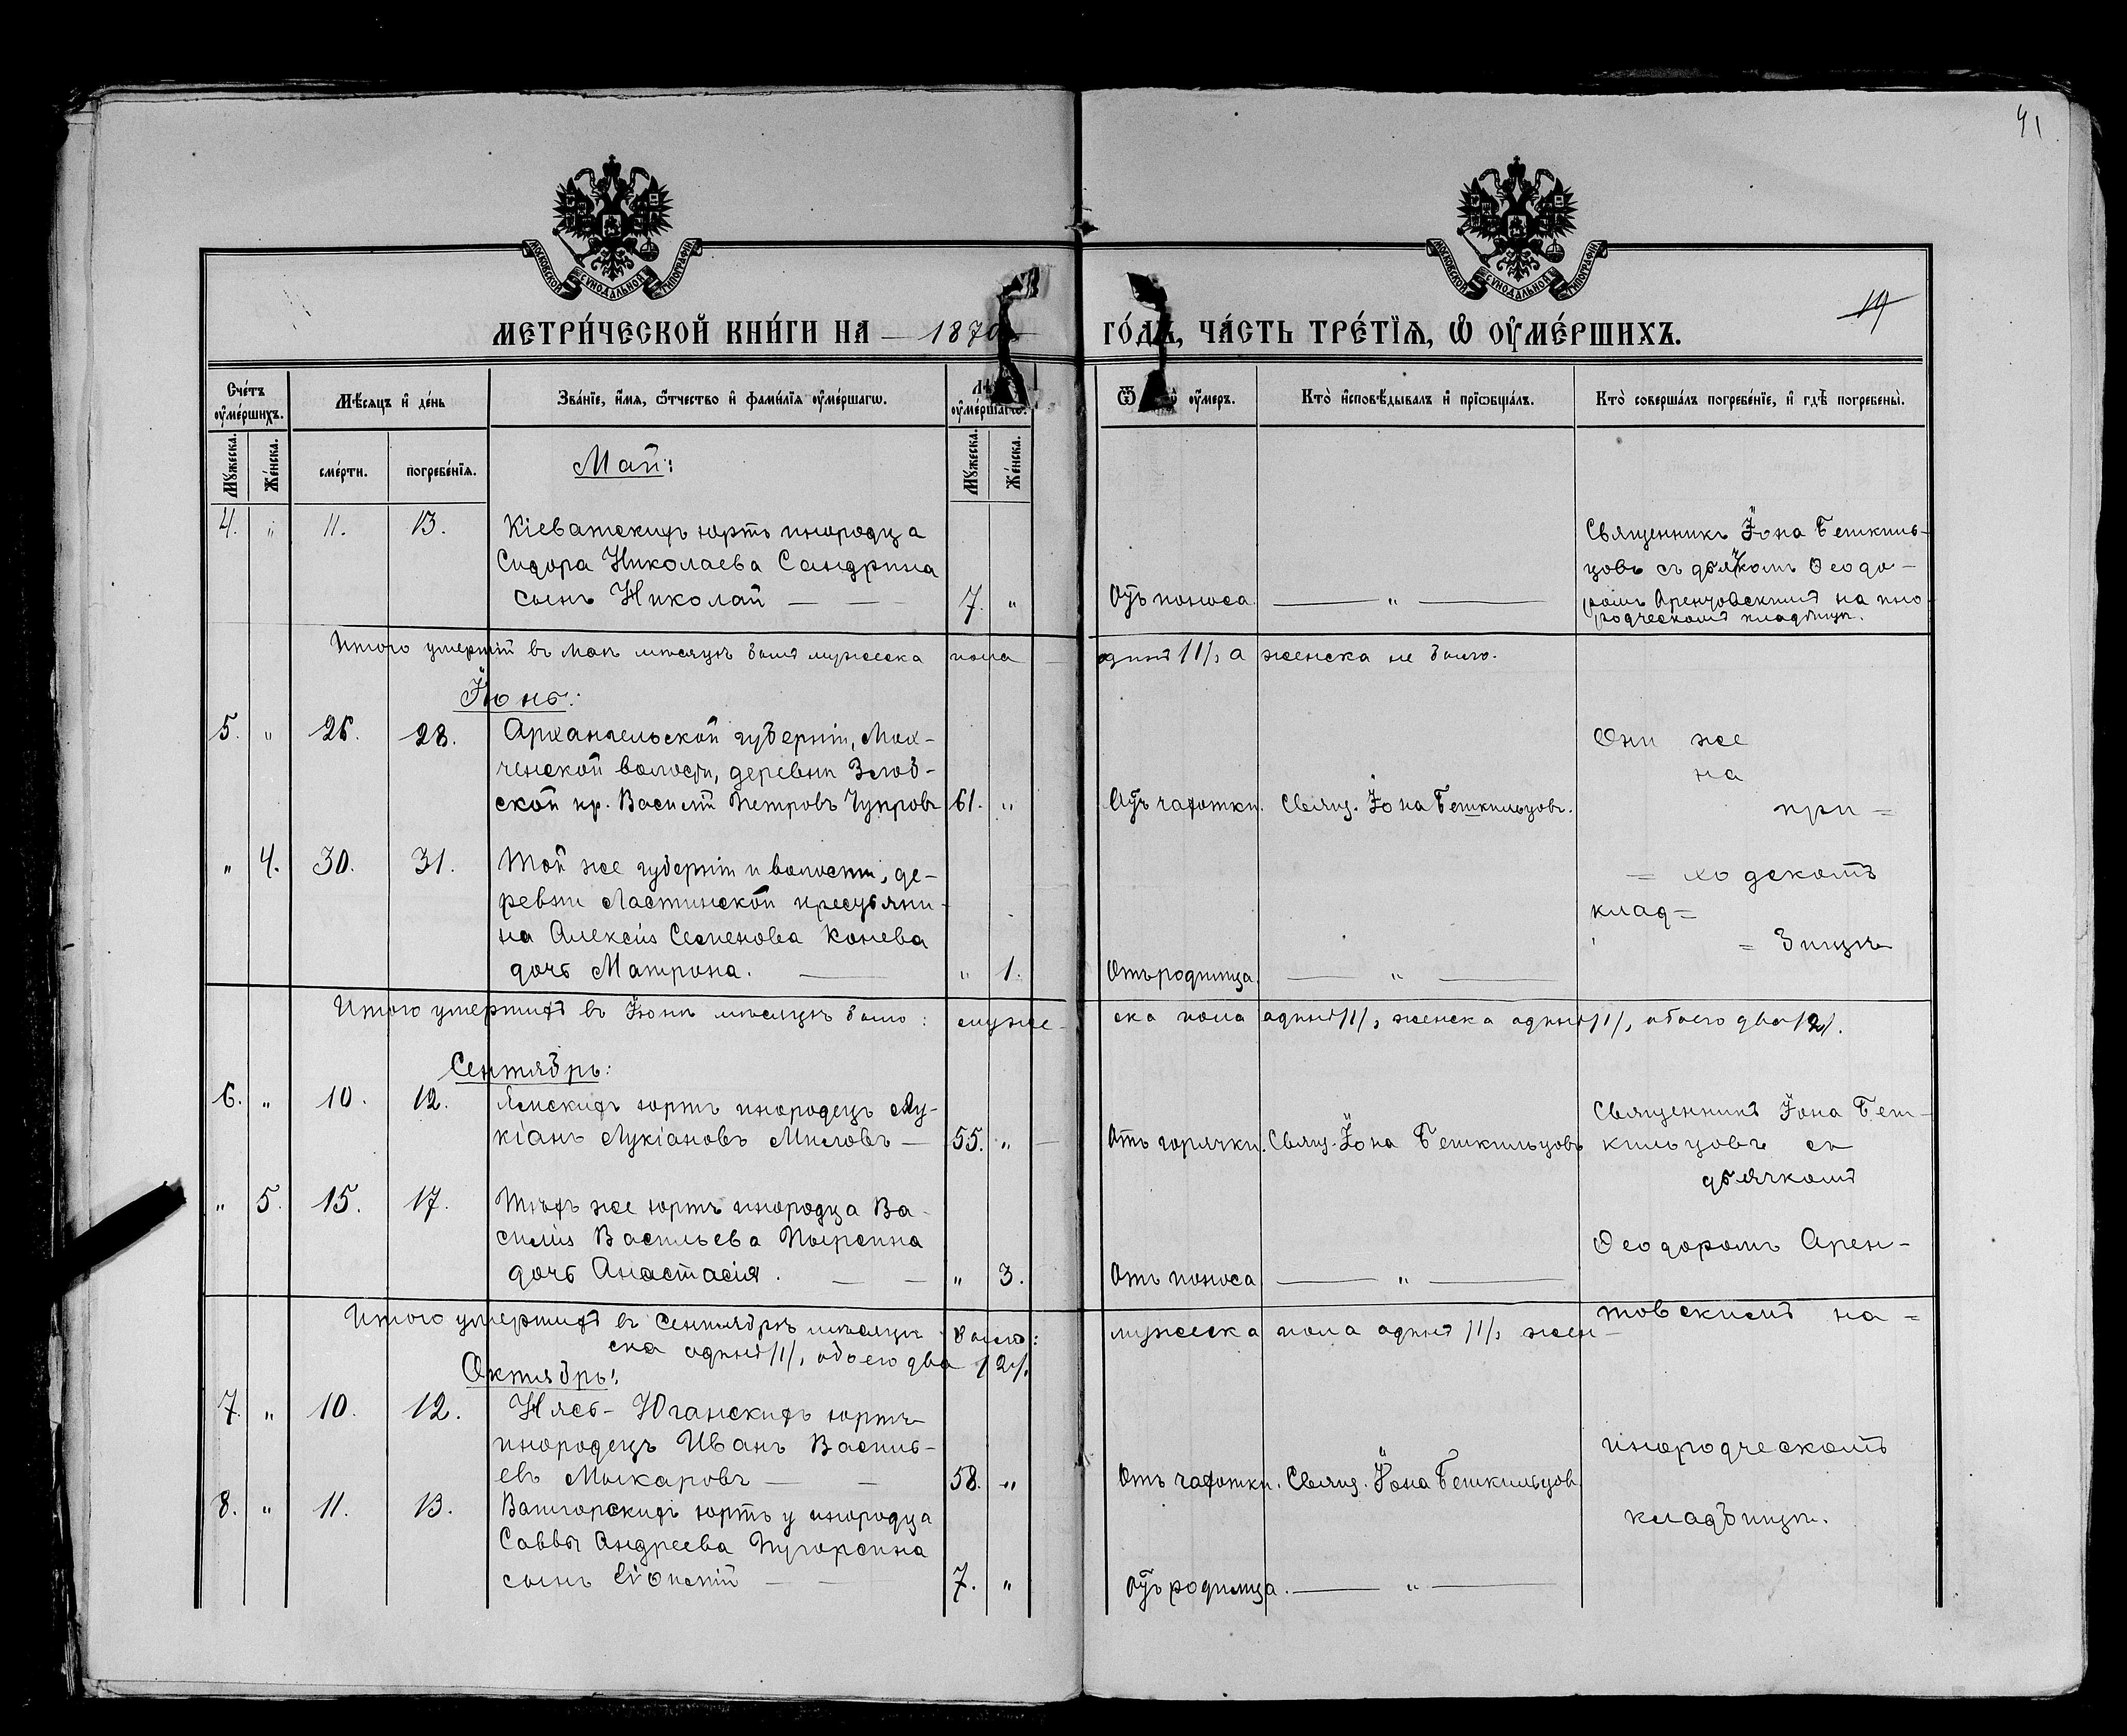 41
19
МОСКОВСКОЙ СѴНОДАЛЬНОЙ ТИПОГРАФІИ
МОСКОВСКОЙ СѴНОДАЛЬНОЙ ТИПОГРАФІИ
МЕТРИ́ЧЕСКОЙ КНИ́ГИ НА 1870 ГО́ДЪ, ЧА́СТЬ ТРЕ́ТЇѦ, Ѡ҆ ОУ҆МЕ́РШИХЪ.
Сче́тъ оу҆ме́ршихъ.
Мѣ́сяцъ и҆ де́нь
Зва́нїе, и҆́мя, ѻ҆́тчество и҆ фами́лїя оу҆ме́ршагѡ.
оу҆ме́ршагѡ.
оу҆́меръ.
Кто̀ и҆сповѣ́дывалъ и҆ прїѡбща́лъ.
Кто̀ соверша́лъ погребе́нїе, и҆ гдѣ̀ погребены̀.
Мꙋ́жеска.
Же́нска.
сме́рти.
погребе́нїя.
Мꙋ́жеска.
Же́нска.
Май:
4. " 11. 13. Кіеватскихъ юртъ инородца
Сидора Николаева Сандрина
сынъ Николай — — 7. " Отъ поноса — " —
Священникъ Іона Бешкиль-
цовъ съ дьячкомъ Ѳеодо-
ромъ Аренчовскимъ на ино
родческомъ кладбищѣ.
Итого умершій въ Маѣ мѣсяцѣ былъ мужеска пола — одинъ /1/, а женска не было.
Іюнь:
5. " 26. 28. Архангельской губерніи, Мох-
ченской волости, деревни
ской кр. Василій Петровъ Чупровъ 61. " Отъ чахотки. Свящ. Іона Бешкильцовъ.
Они же
на
при=
" 4. 30. 31. Той же губерніи и волости, де-
ревни Ластинской крестьяни-
на Алексія Семенова Конева
дочь Матрона. — " 1. Отъ родимца — " —
= ходскомъ
клад=
= бищѣ
Итого умершихъ въ Іюнѣ мѣсяцѣ было: муже-ска пола одинъ /1/, женска одинъ /1/, обоего два /2/.
Сентябрь:
6. " 10. 12. Ямскихъ юртъ инородецъ Лу-
кіанъ Лукіановъ Милловъ — 55. " — Отъ горячки. Свящ. Іона Бешкильцовъ
Священникъ Іона Беш-
кильцовъ съ
дьячкомъ
" 5. 15. 17. Тѣхъ же юртъ инородца Ва-
силія Васильева
дочь Анастасія. — — " 3. Отъ поноса — " —
Ѳеодоромъ Арен-
товскимъ на=
Итого умершихъ въ Сентябрѣ мѣсяцѣ было: мужеска пола одинъ /1/, жен-
ска одинъ /1/, обоего два /2/.
Октябрь:
7. " 10. 12. Нясь-Юганскихъ юртъ
инородецъ Иванъ Василь-
евъ Мыкаровъ — — 58. " Отъ чахотки. Свящ. Іона Бешкильцовъ
инородческомъ
8. " 11. 13. юртъ у инородца
Саввы Андреева
сынъ — — 7. " Отъ родимца. — " —
кладбищѣ.